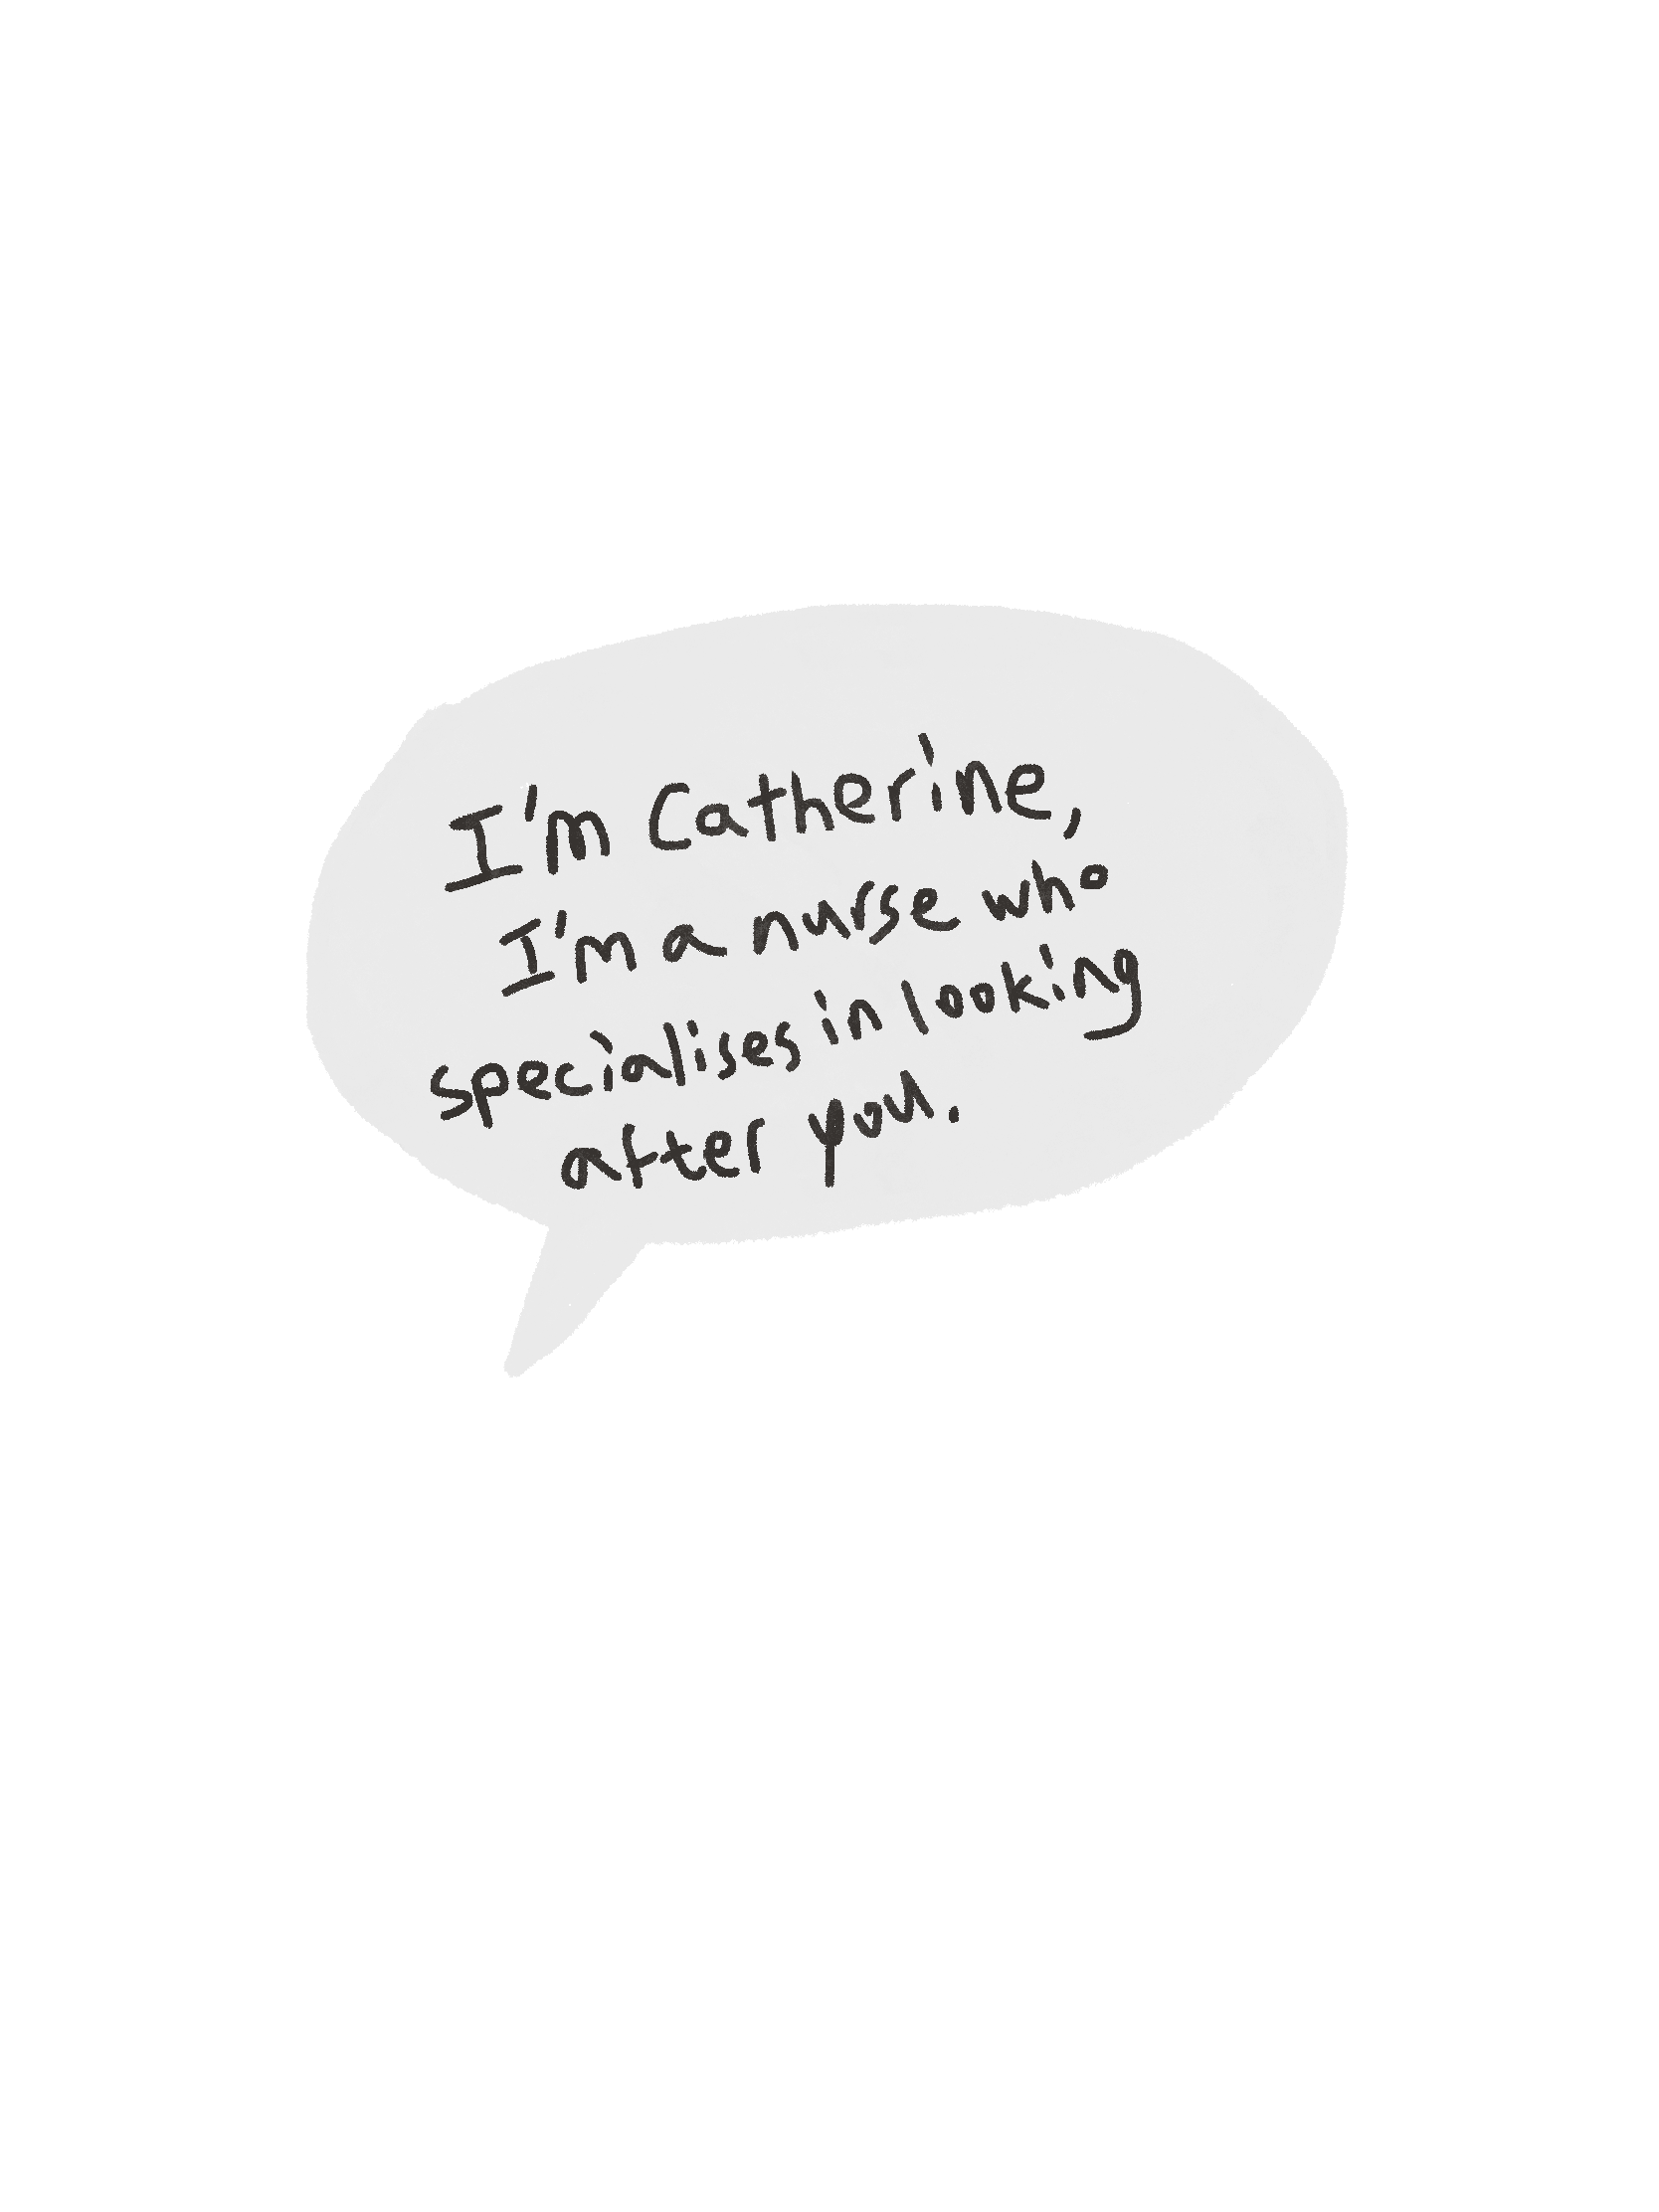 I'm Catherine,
I'm a nurse who
specialises in looking
after you.